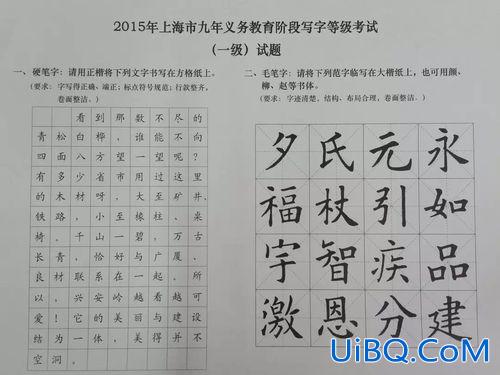 2015年上海市九年义务教育阶段写字等级考试
（一级）试题
一、硬笔字：请用正楷将下列文字书写在方格纸上。
（要求：字写得正确、端正；标点符号规范；行款整齐，
卷面整洁。）
看到那数不尽的
青松白桦，谁能不向
四面八方望一望呢？
有多少省市用过这里
的木材呀，大至矿井、
铁路，小至椽柱、桌
椅。千山一碧，万古
长青，恰好与广厦、
良材联系在一起。所
以，兴安岭越看越可
爱！它的美丽与建设
结为一体，美得并不
空洞。
二、毛笔字：请将下列范字临写在大楷纸上，也可用颜、
柳、赵等书体。
（要求：字迹清楚，结构、布局合理，卷面整洁。）
夕氏元永
福杖引如
宇智疾品
激恩分建
UiBQ.CoM